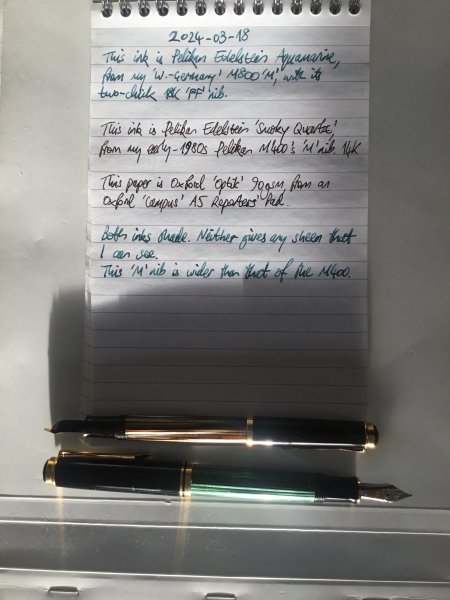 2024-03-18
This ink is Pelikan Edelstein Aquamarine,
from my 'W.-Germany' M800 'M', with its
two-chick 18K 'PF' nib.
This ink is Pelikan Edelstein 'Smoky Quartz',
from my early-1980s Pelikan M400's 'M' nib. 14K
This paper is Oxford 'Optik' 90gsm from an
Oxford 'Campus' A5 Reporters' Pad.
Both inks shade. Neither gives any sheen that
I can see.
This 'M' nib is wider than that of the M400.